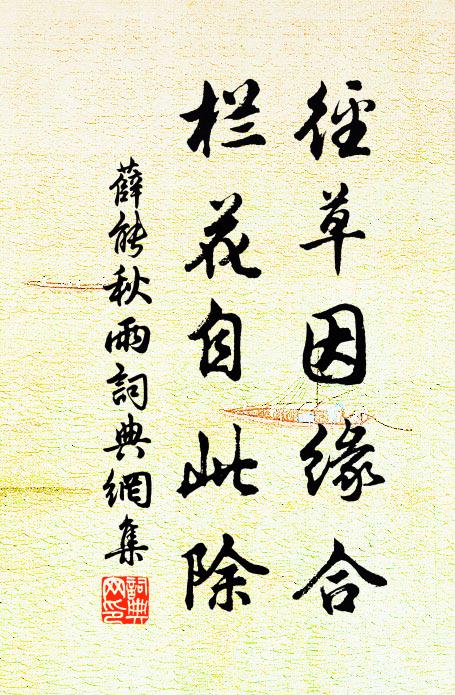 徑草因緣合
栏花自此除
薛能秋雨詞典網集
詞典